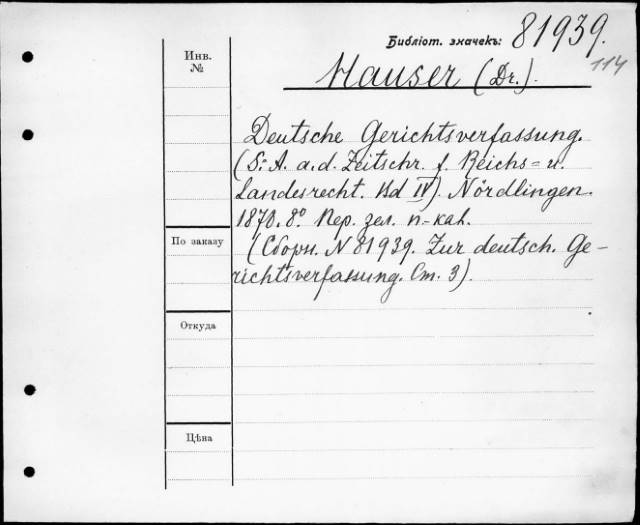 Библіот. значекъ: 81939.
114
Инв. №
Hauser (Dr.).
Deutsche Gerichtsverfassung.
(S. A. a. d. Zeitschr. f. Reichs= u.
Landesrecht. Bd IV). Nördlingen.
1870. 8° Пер. зел. п-кал.
По заказу
(Сборн. N 81939. Zur deutsch. Ge-
richtsverfassung. Ст. 3).
Откуда
Цѣна